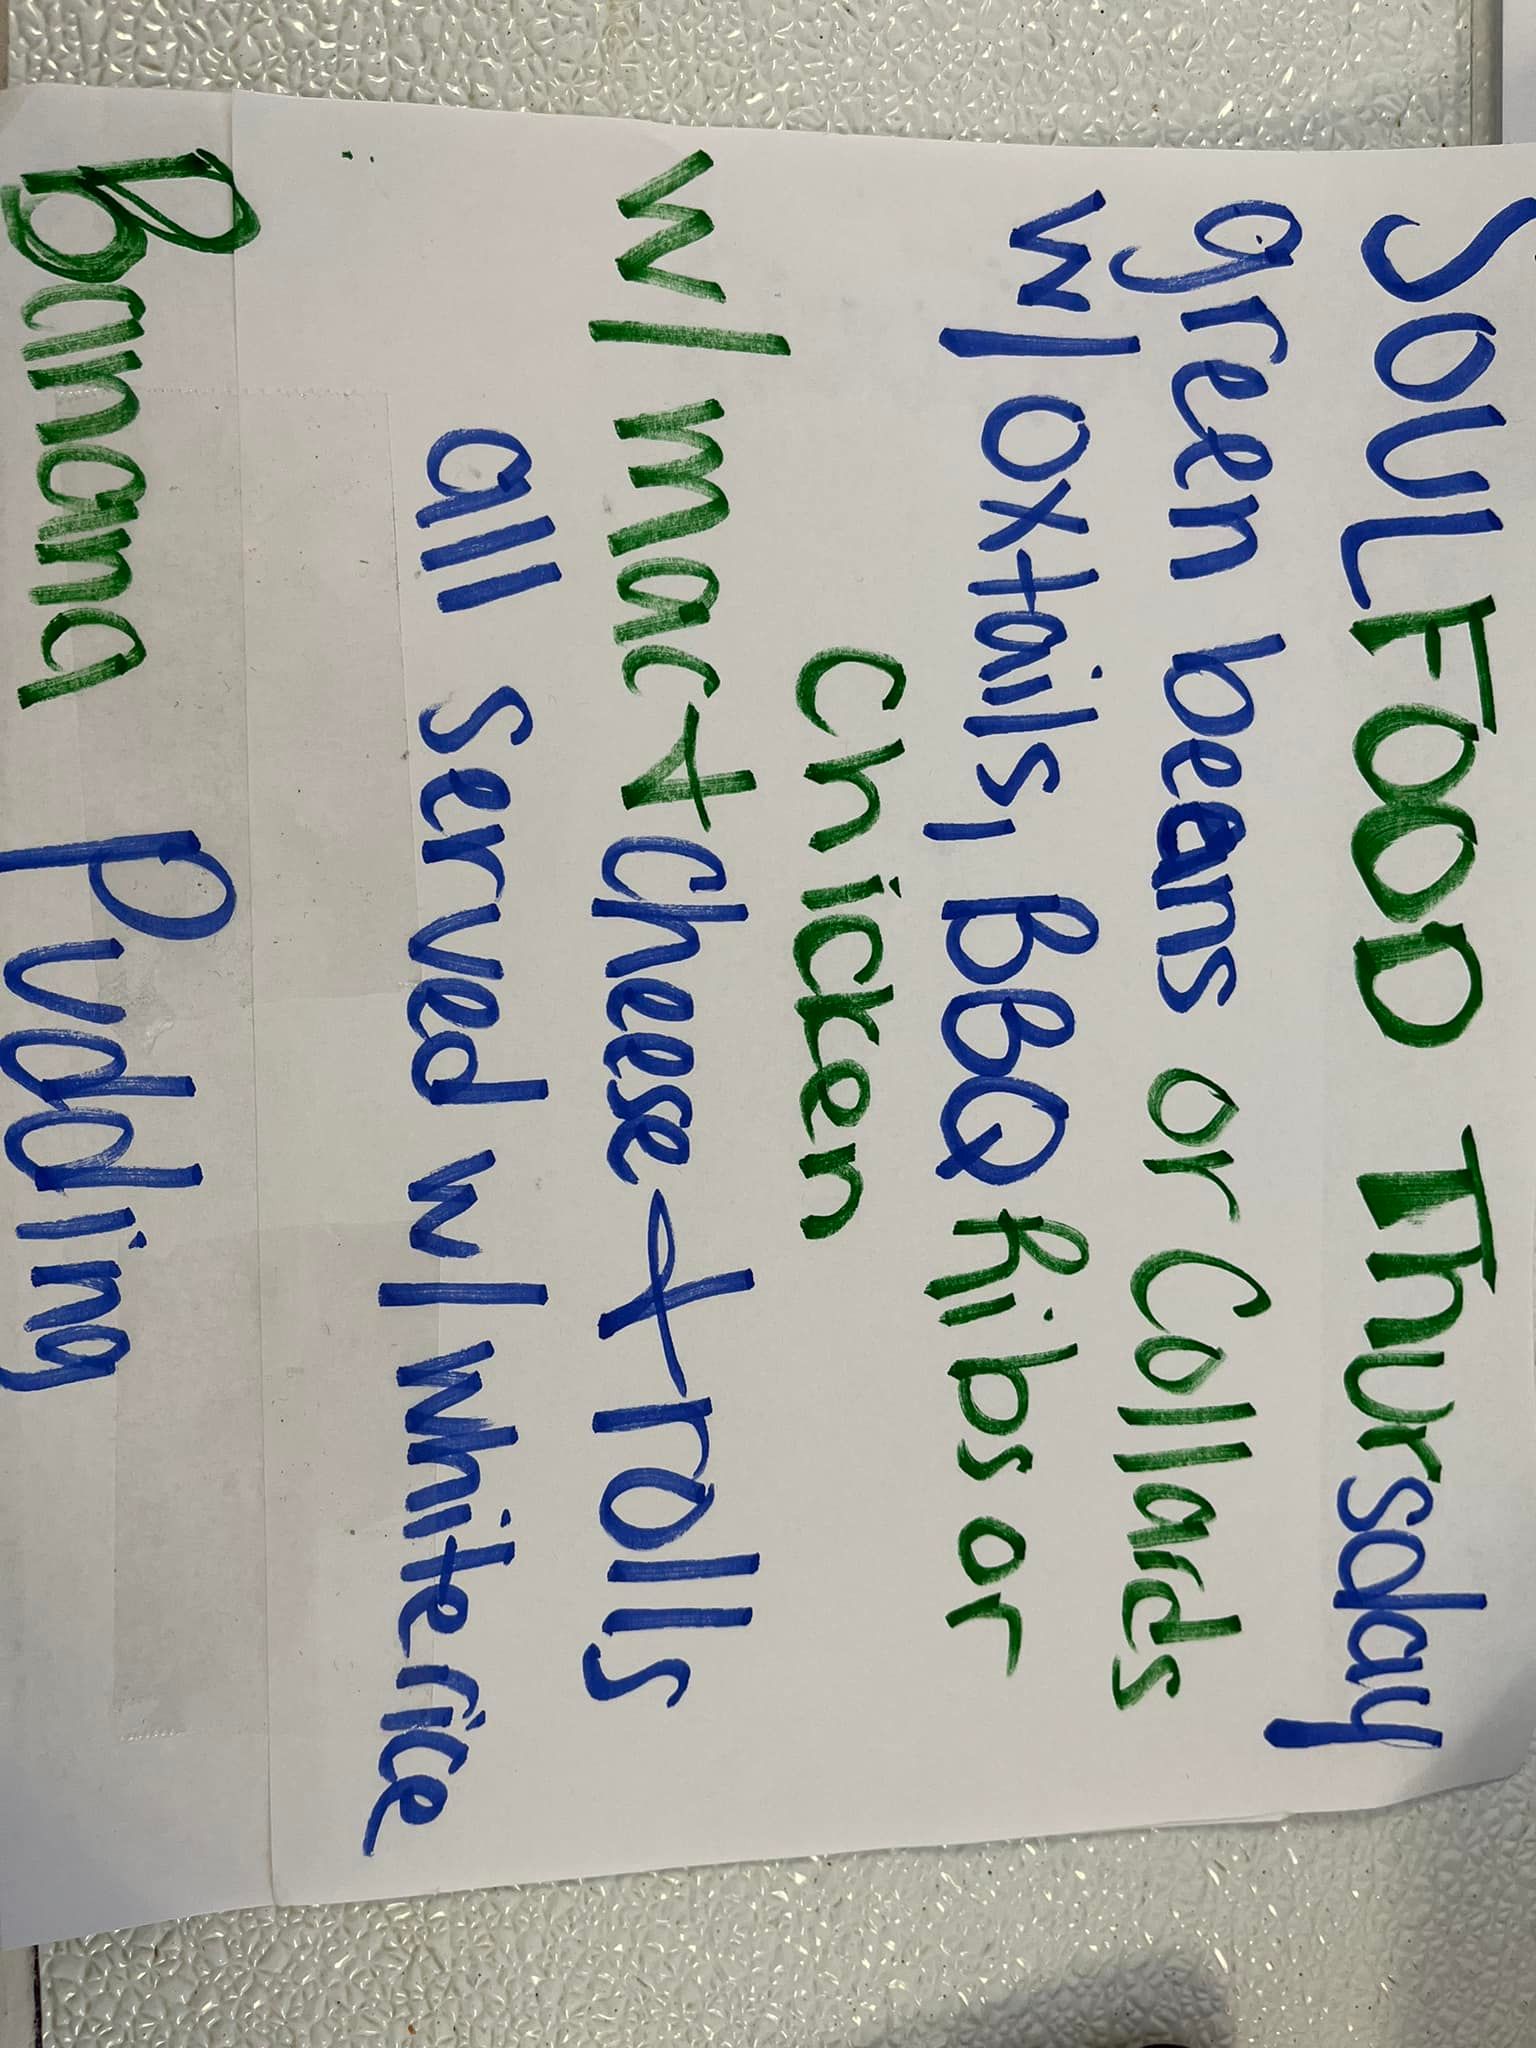 SOUL FOOD Thursday
green beans or Collards
w/ oxtails, BBQ Ribs or
Chicken
w/ mac + Cheese + rolls
all served w/ white rice
Banana Pudding